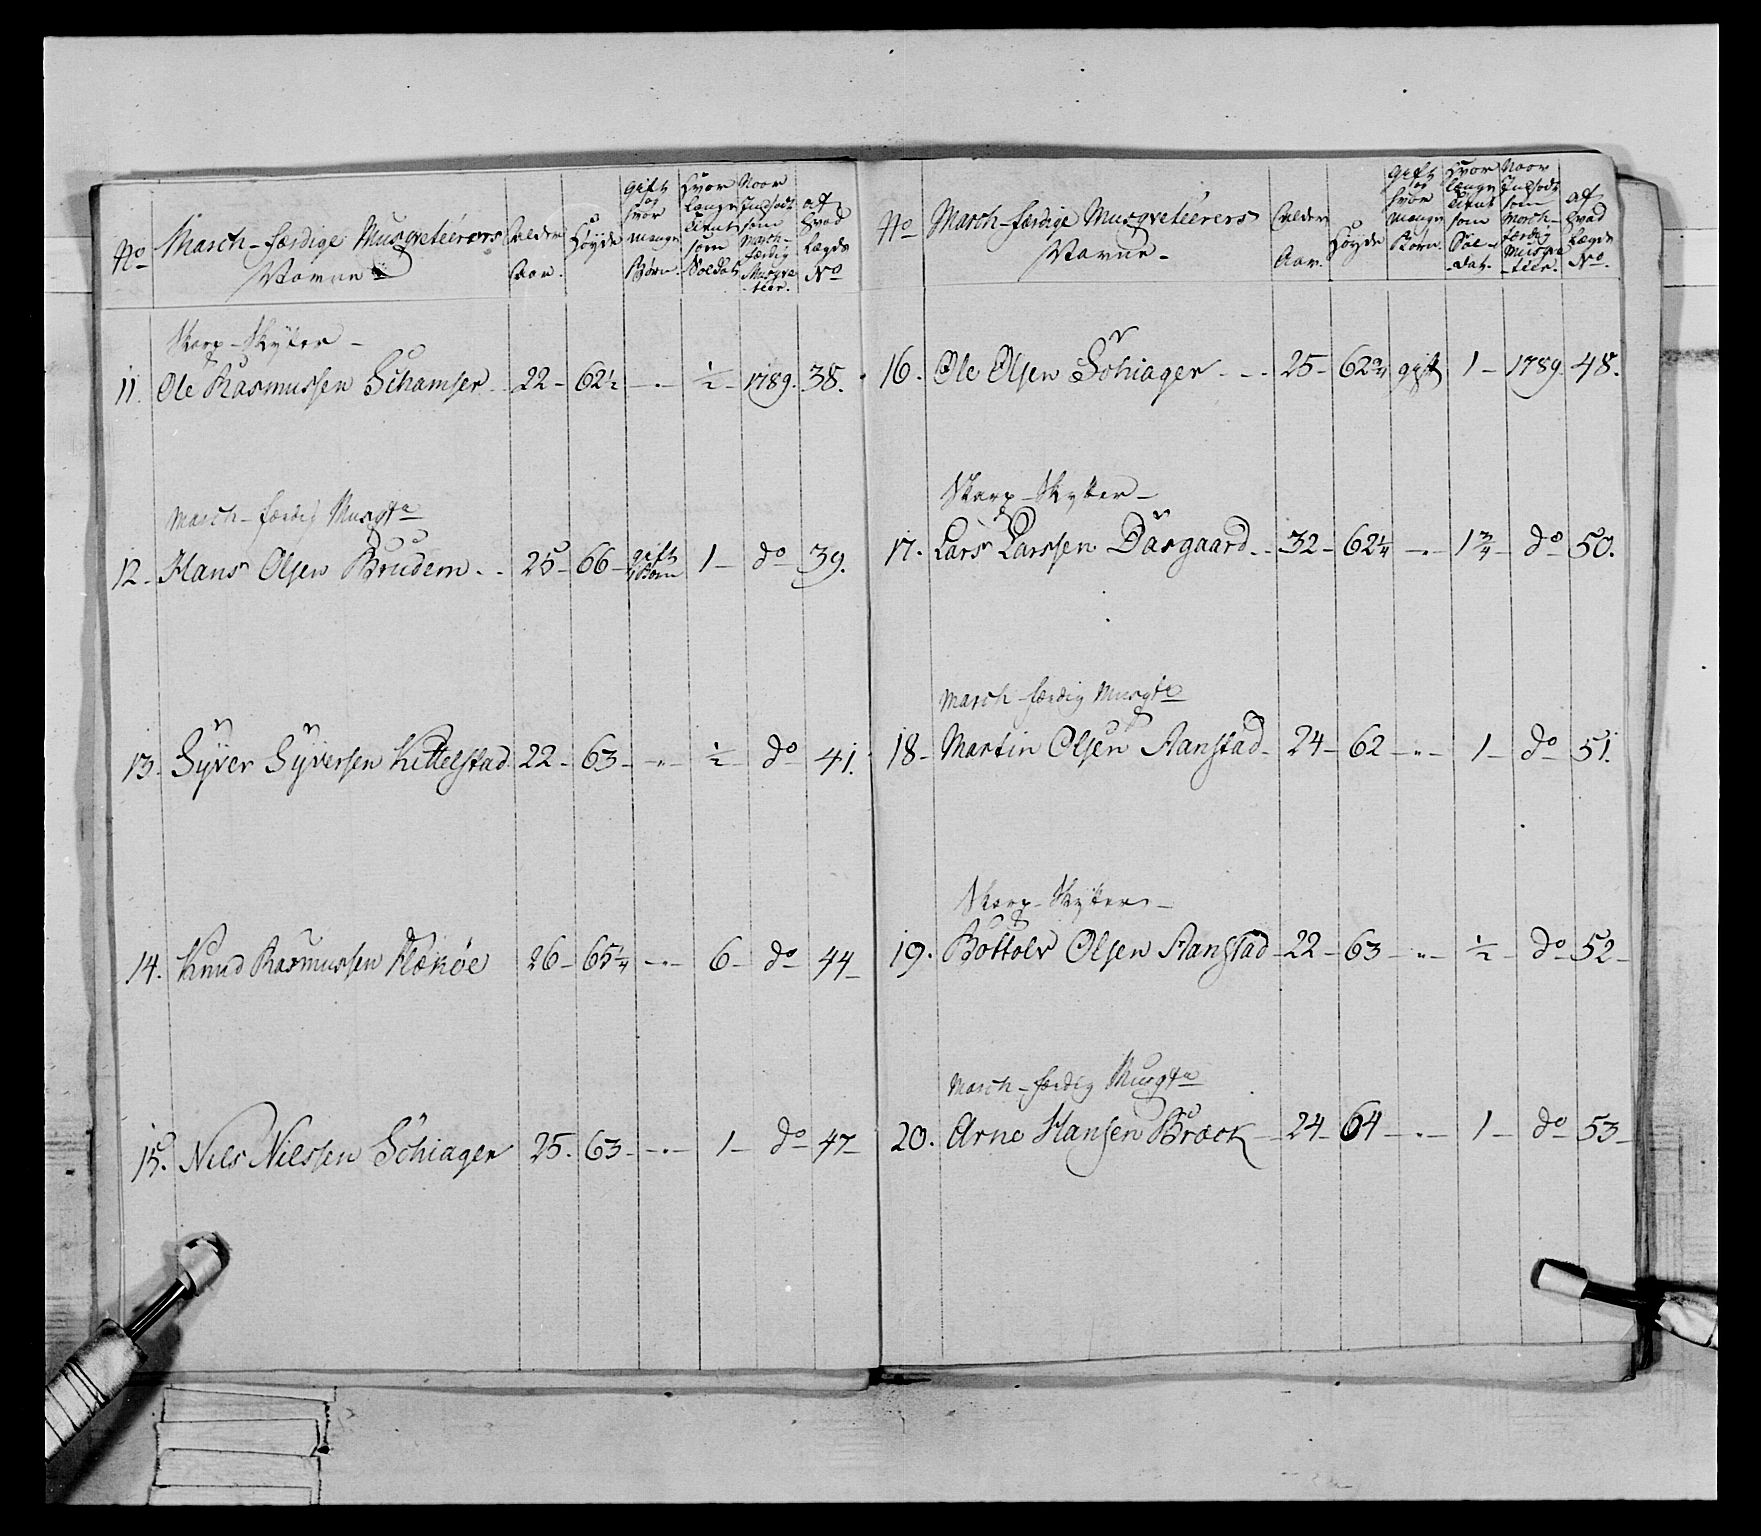 No
March-færdige Musqveteérers
Navne
Alder
Aar.
Høyde
gift
og
hvor
mange
Børn
Hvor
længe
tient
som
Soldat
Naar
Indsadt
som
March-
færdig
Musqve
-teer.
af
Hvad
Lægds
No
Skarp-Skÿter -
11. Ole Rasmussen Schamser - 22 - 62½ - " - ½ - 1789. 38.
March-færdig Musqte
12. Hans Olsen Brudem - - 25 - 66 - gift
1 Barn 1 - do 39.
13. Syver Syversen Kittelstad 22 - 63 - " - ½ - do 41.
14. Knud Rasmussen Røkøe 26 - 65¼ - " - 6 - do 44 -
15. Nels Nilssen Söhiager 25. 63 - " - 1 - do 47 -
No
March-færdige Musqveteérers
Navne -
Alder
Aar.
Høyde
gift
og
hvor
mange
Børn.
Hvor
længe
tient
som
Sol-
dat.
Naar
Indsadt
som
March-
færdig
Musqve
-teer.
af
Hvad
Lægds
No.
16. Ole Olsen Söhiager - - - 25 - 62¾ gift 1 - 1789. 48.
Skarp-Skytter -
17. Lars Larssen Dasgaard - - 32 - 62¼ - " - 1¾ - do 50.
March-færdig Musqte
18 - Martin Olsen Aanstad - 24 - 62 - " - 1 - do 51.
Skarp-Skytter -
19. Bottolv Olsen Aanstad - 22 - 63 - " - ½ - do 52 -
March-færdig Musqte
20. Arne Hansen Bræck - 24 - 64 - " - 1 - do 53 -